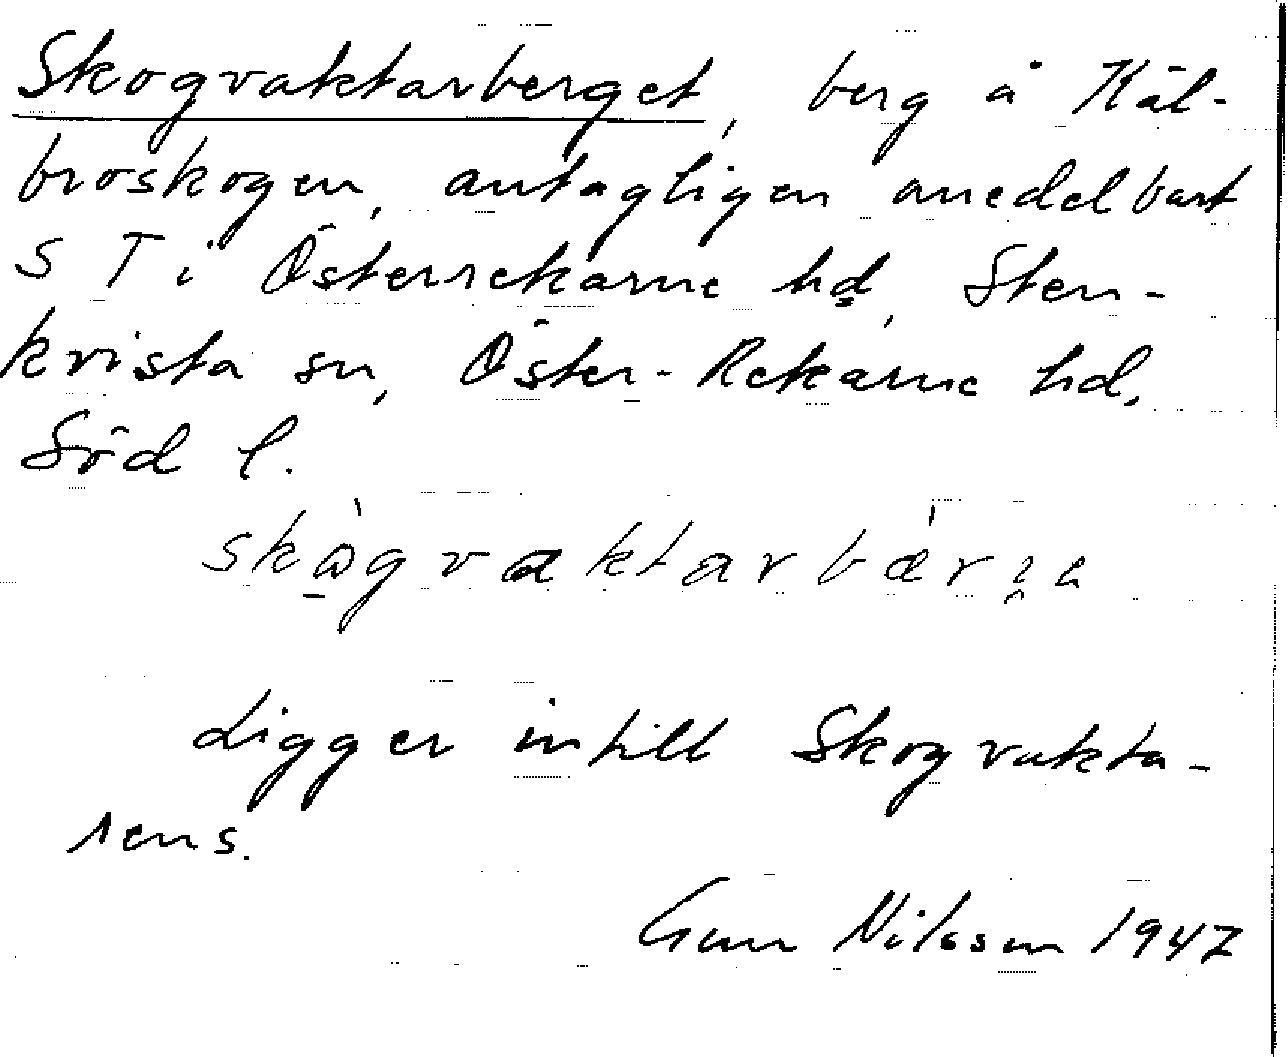 Skogvaktarberget, berg å Käl-
broskogen, antagligen omedelbart
S T i Österrekarne hd, Sten-
kvista sn, Öster-Rekarne hd,
Söd l.
skògvaktarbær
Ligger intill Skogvakta-
rens.
Gun Nilsson 1947